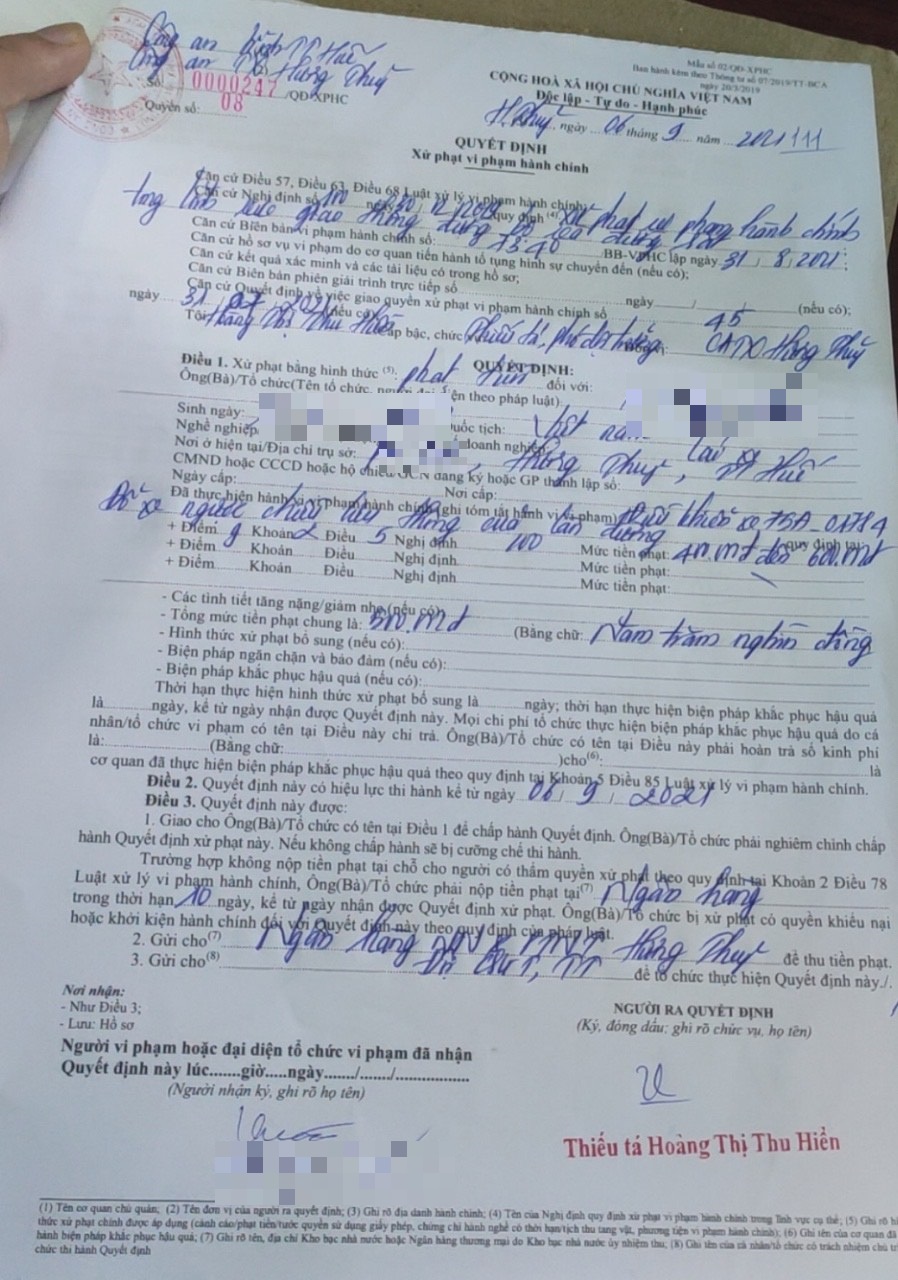 Công an tỉnh TT Huế
Công an TX Hương Thuỷ
Số: 0000247 /QĐ-XPHC
Quyển số: 08
Mẫu số 02/QĐ-XPHC
Ban hành kèm theo Thông tư số 07/2019/TT-BCA
ngày 20/3/2019
CỘNG HOÀ XÃ HỘI CHỦ NGHĨA VIỆT NAM
Độc lập - Tự do - Hạnh phúc
H.Thuỷ, ngày 06 tháng 9 năm 2021
QUYẾT ĐỊNH
Xử phạt vi phạm hành chính
Căn cứ Điều 57, Điều 63, Điều 68 Luật xử lý vi phạm hành chính;
Căn cứ Nghị định số 100 ngày 30/12/2019 quy định (4) xử phạt vi phạm hành chính
trong lĩnh vực giao thông đường bộ và đường sắt
Căn cứ Biên bản vi phạm hành chính số: BB-VPHC lập ngày 31/8/2021;
Căn cứ hồ sơ vụ vi phạm do cơ quan tiến hành tố tụng hình sự chuyển đến (nếu có);
Căn cứ kết quả xác minh và các tài liệu có trong hồ sơ;
Căn cứ Biên bản phiên giải trình trực tiếp số ngày / / (nếu có);
Căn cứ Quyết định về việc giao quyền xử phạt vi phạm hành chính số 45
ngày 31 (nếu có)
Tôi: Hoàng Thị Thu Hiền Cấp bậc, chức Thiếu tá, phó đội trưởng CATX Hương Thuỷ
QUYẾT ĐỊNH:
Điều 1. Xử phạt bằng hình thức (5): phạt tiền đối với:
Ông(Bà)/Tổ chức(Tên tổ chức, người đại diện theo pháp luật)
Sinh ngày: Quốc tịch: Việt nam
Nghề nghiệp doanh nghiệp
Nơi ở hiện tại/Địa chỉ trụ sở: Hương Thuỷ, TT Huế
CMND hoặc CCCD hoặc hộ chiếu/GCN đăng ký hoặc GP thành lập số:
Ngày cấp: Nơi cấp:
Đã thực hiện hành vi vi phạm hành chính (ghi tóm tắt hành vi vi phạm) Điều khiển xe 75A-
Đỗ xe ngược chiều lưu thông của làn đường quy định tại
+ Điểm g Khoản 2 Điều 5 Nghị định 100 Mức tiền phạt: 400.mđ đến 600.mđ
+ Điểm Khoản Điều Nghị định Mức tiền phạt:
+ Điểm Khoản Điều Nghị định Mức tiền phạt:
- Các tình tiết tăng nặng/giảm nhẹ (nếu có)
- Tổng mức tiền phạt chung là: 500.mđ (Bằng chữ: Năm trăm nghìn đồng
- Hình thức xử phạt bổ sung (nếu có):
- Biện pháp ngăn chặn và bảo đảm (nếu có):
- Biện pháp khắc phục hậu quả (nếu có):
Thời hạn thực hiện hình thức xử phạt bổ sung là ngày; thời hạn thực hiện biện pháp khắc phục hậu quả
là ngày, kể từ ngày nhận được Quyết định này. Mọi chi phí tổ chức thực hiện biện pháp khắc phục hậu quả do cá
nhân/tổ chức vi phạm có tên tại Điều này chi trả. Ông(Bà)/Tổ chức có tên tại Điều này phải hoàn trả số kinh phí
là: (Bằng chữ: )cho(6): là
cơ quan đã thực hiện biện pháp khắc phục hậu quả theo quy định tại Khoản 5 Điều 85 Luật xử lý vi phạm hành chính.
Điều 2. Quyết định này có hiệu lực thi hành kể từ ngày 06/9/2021
Điều 3. Quyết định này được:
1. Giao cho Ông(Bà)/Tổ chức có tên tại Điều 1 để chấp hành Quyết định. Ông(Bà)/Tổ chức phải nghiêm chỉnh chấp
hành Quyết định xử phạt này. Nếu không chấp hành sẽ bị cưỡng chế thi hành.
Trường hợp không nộp tiền phạt tại chỗ cho người có thẩm quyền xử phạt theo quy định tại Khoản 2 Điều 78
Luật xử lý vi phạm hành chính, Ông(Bà)/Tổ chức phải nộp tiền phạt tại(7) Ngân hàng
trong thời hạn 10 ngày, kể từ ngày nhận được Quyết định xử phạt. Ông(Bà)/Tổ chức bị xử phạt có quyền khiếu nại
hoặc khởi kiện hành chính đối với Quyết định này theo quy định của pháp luật.
2. Gửi cho(7) Ngân hàng Hương Thuỷ để thu tiền phạt.
3. Gửi cho(8) để tổ chức thực hiện Quyết định này./.
Nơi nhận:
- Như Điều 3;
- Lưu: Hồ sơ
NGƯỜI RA QUYẾT ĐỊNH
(Ký, đóng dấu: ghi rõ chức vụ, họ tên)
Người vi phạm hoặc đại diện tổ chức vi phạm đã nhận
Quyết định này lúc.......giờ.....ngày......./......./..................
(Người nhận ký, ghi rõ họ tên)
Thiếu tá Hoàng Thị Thu Hiền
(1) Tên cơ quan chủ quản; (2) Tên đơn vị của người ra quyết định; (3) Ghi rõ địa danh hành chính; (4) Tên của Nghị định quy định xử phạt vi phạm hành chính trong lĩnh vực cụ thể; (5) Ghi rõ
thức xử phạt chính được áp dụng (cảnh cáo/phạt tiền/tước quyền sử dụng giấy phép, chứng chỉ hành nghề có thời hạn/tịch thu tang vật, phương tiện vi phạm hành chính); (6) Ghi tên của cơ quan đã
hành biện pháp khắc phục hậu quả; (7) Ghi rõ tên, địa chỉ Kho bạc nhà nước hoặc Ngân hàng thương mại do Kho bạc nhà nước ủy nhiệm thu; (8) Ghi tên của cá nhân/tổ chức có trách nhiệm chủ
chức thi hành Quyết định